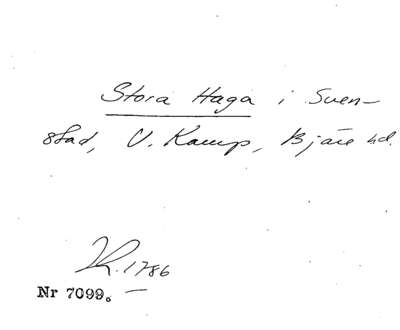 Stora Haga i Sven-
stad, V. Karup, Bjäre hd.
R. 1786
Nr 7099.